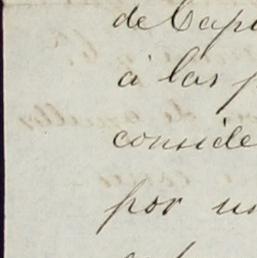 de Capi
á las p
conside
por un